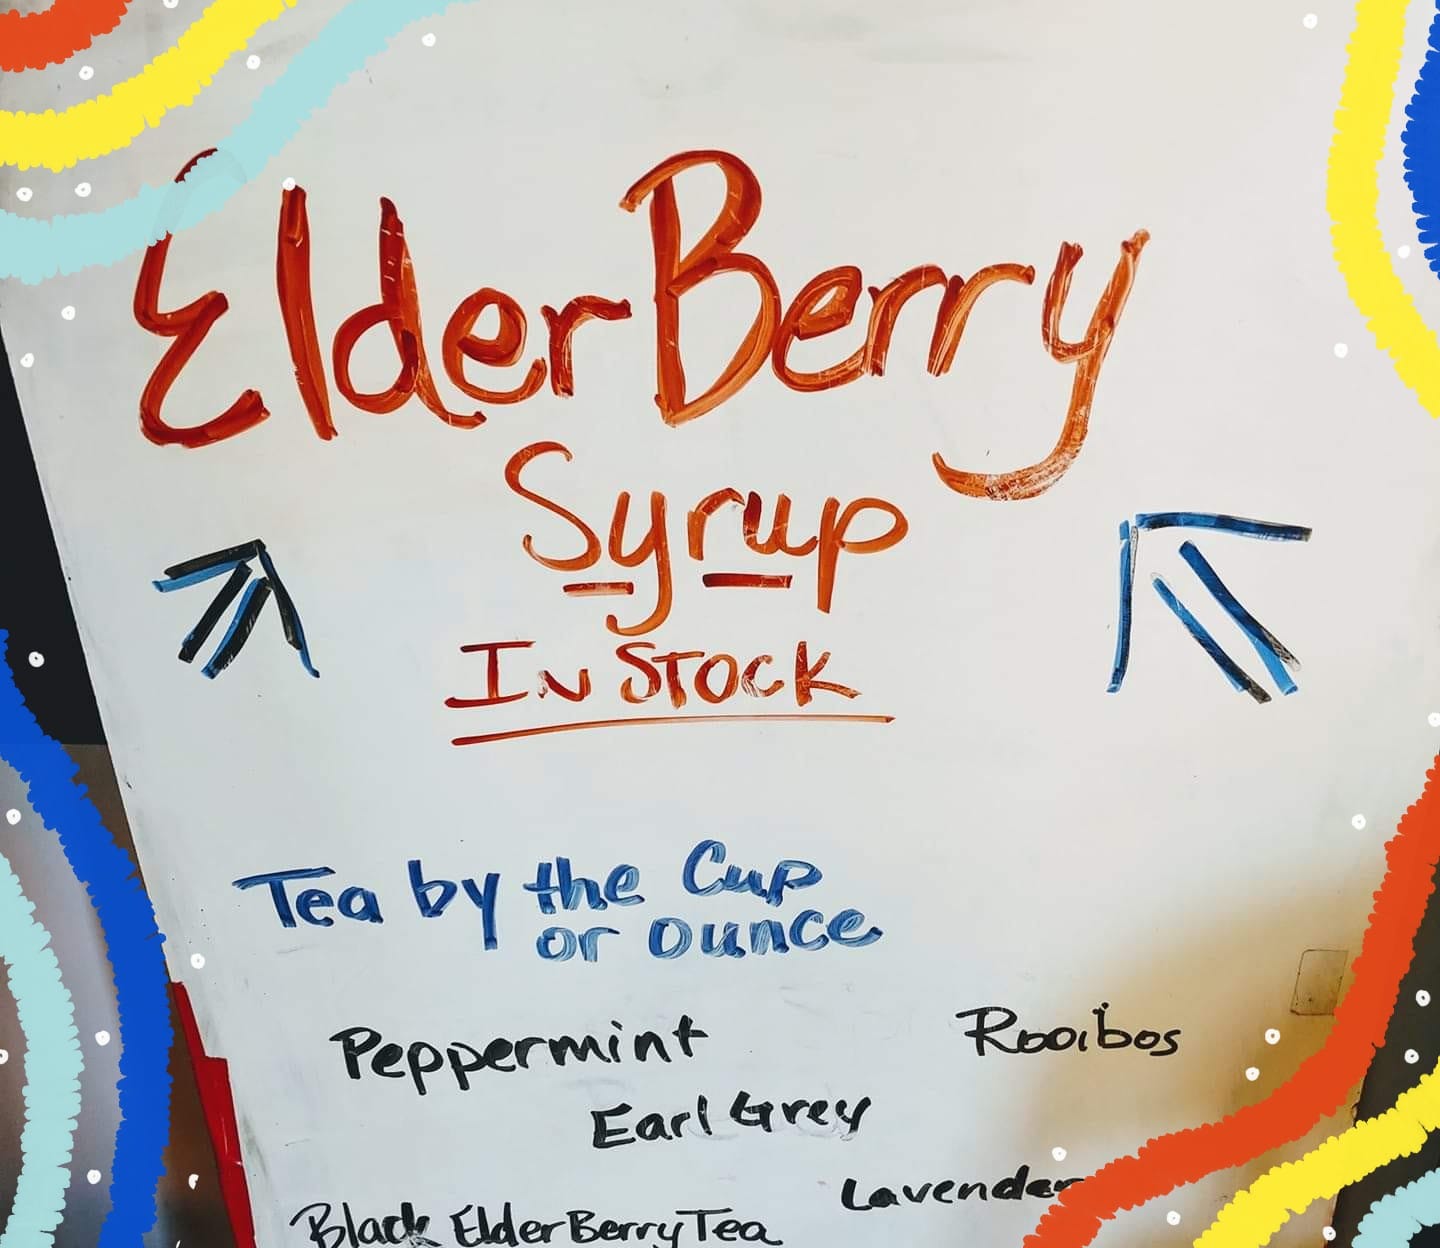 ElderBerry
Syrup
In Stock
Tea by the Cup
or ounce
Peppermint
Rooibos
Earl Grey
Lavender
Black ElderBerry Tea